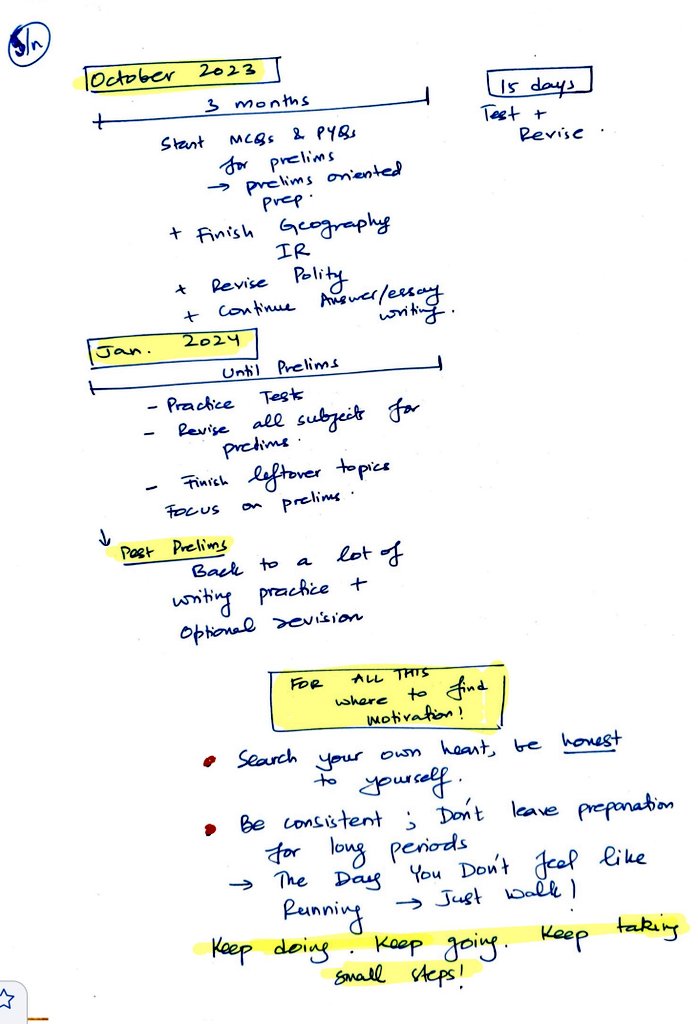 5/n
October 2023
3 months
Start MCQs & PYQs
for prelims
→ prelims oriented
prep.
+ Finish Geography
IR
+ Revise Polity
+ Continue Answer/essay
writing.
15 days
Test +
Revise.
Jan. 2024
Until Prelims
- Practice Tests
- Revise all subjects for
prelims.
- Finish leftover topics
Focus on prelims.
↓ Post Prelims
Back to a lot of
writing practice +
Optional revision
FOR ALL THIS
where to find
motivation!
• Search your own heart, be honest
to yourself.
• Be consistent ; Don't leave preparation
for long periods
→ The Day You Don't feel like
Running → Just Walk!
Keep doing. Keep going. Keep taking
small steps!